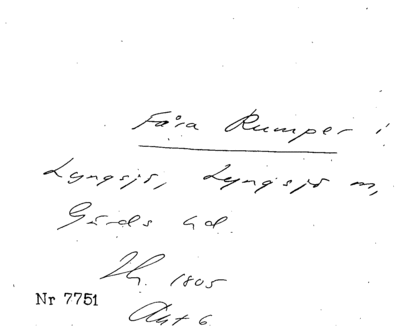 Fåra Rumper i
Lyngsjö, Lyngsjö m,
Gärds hd.
Th. 1805
Nr 7751
Akt 6